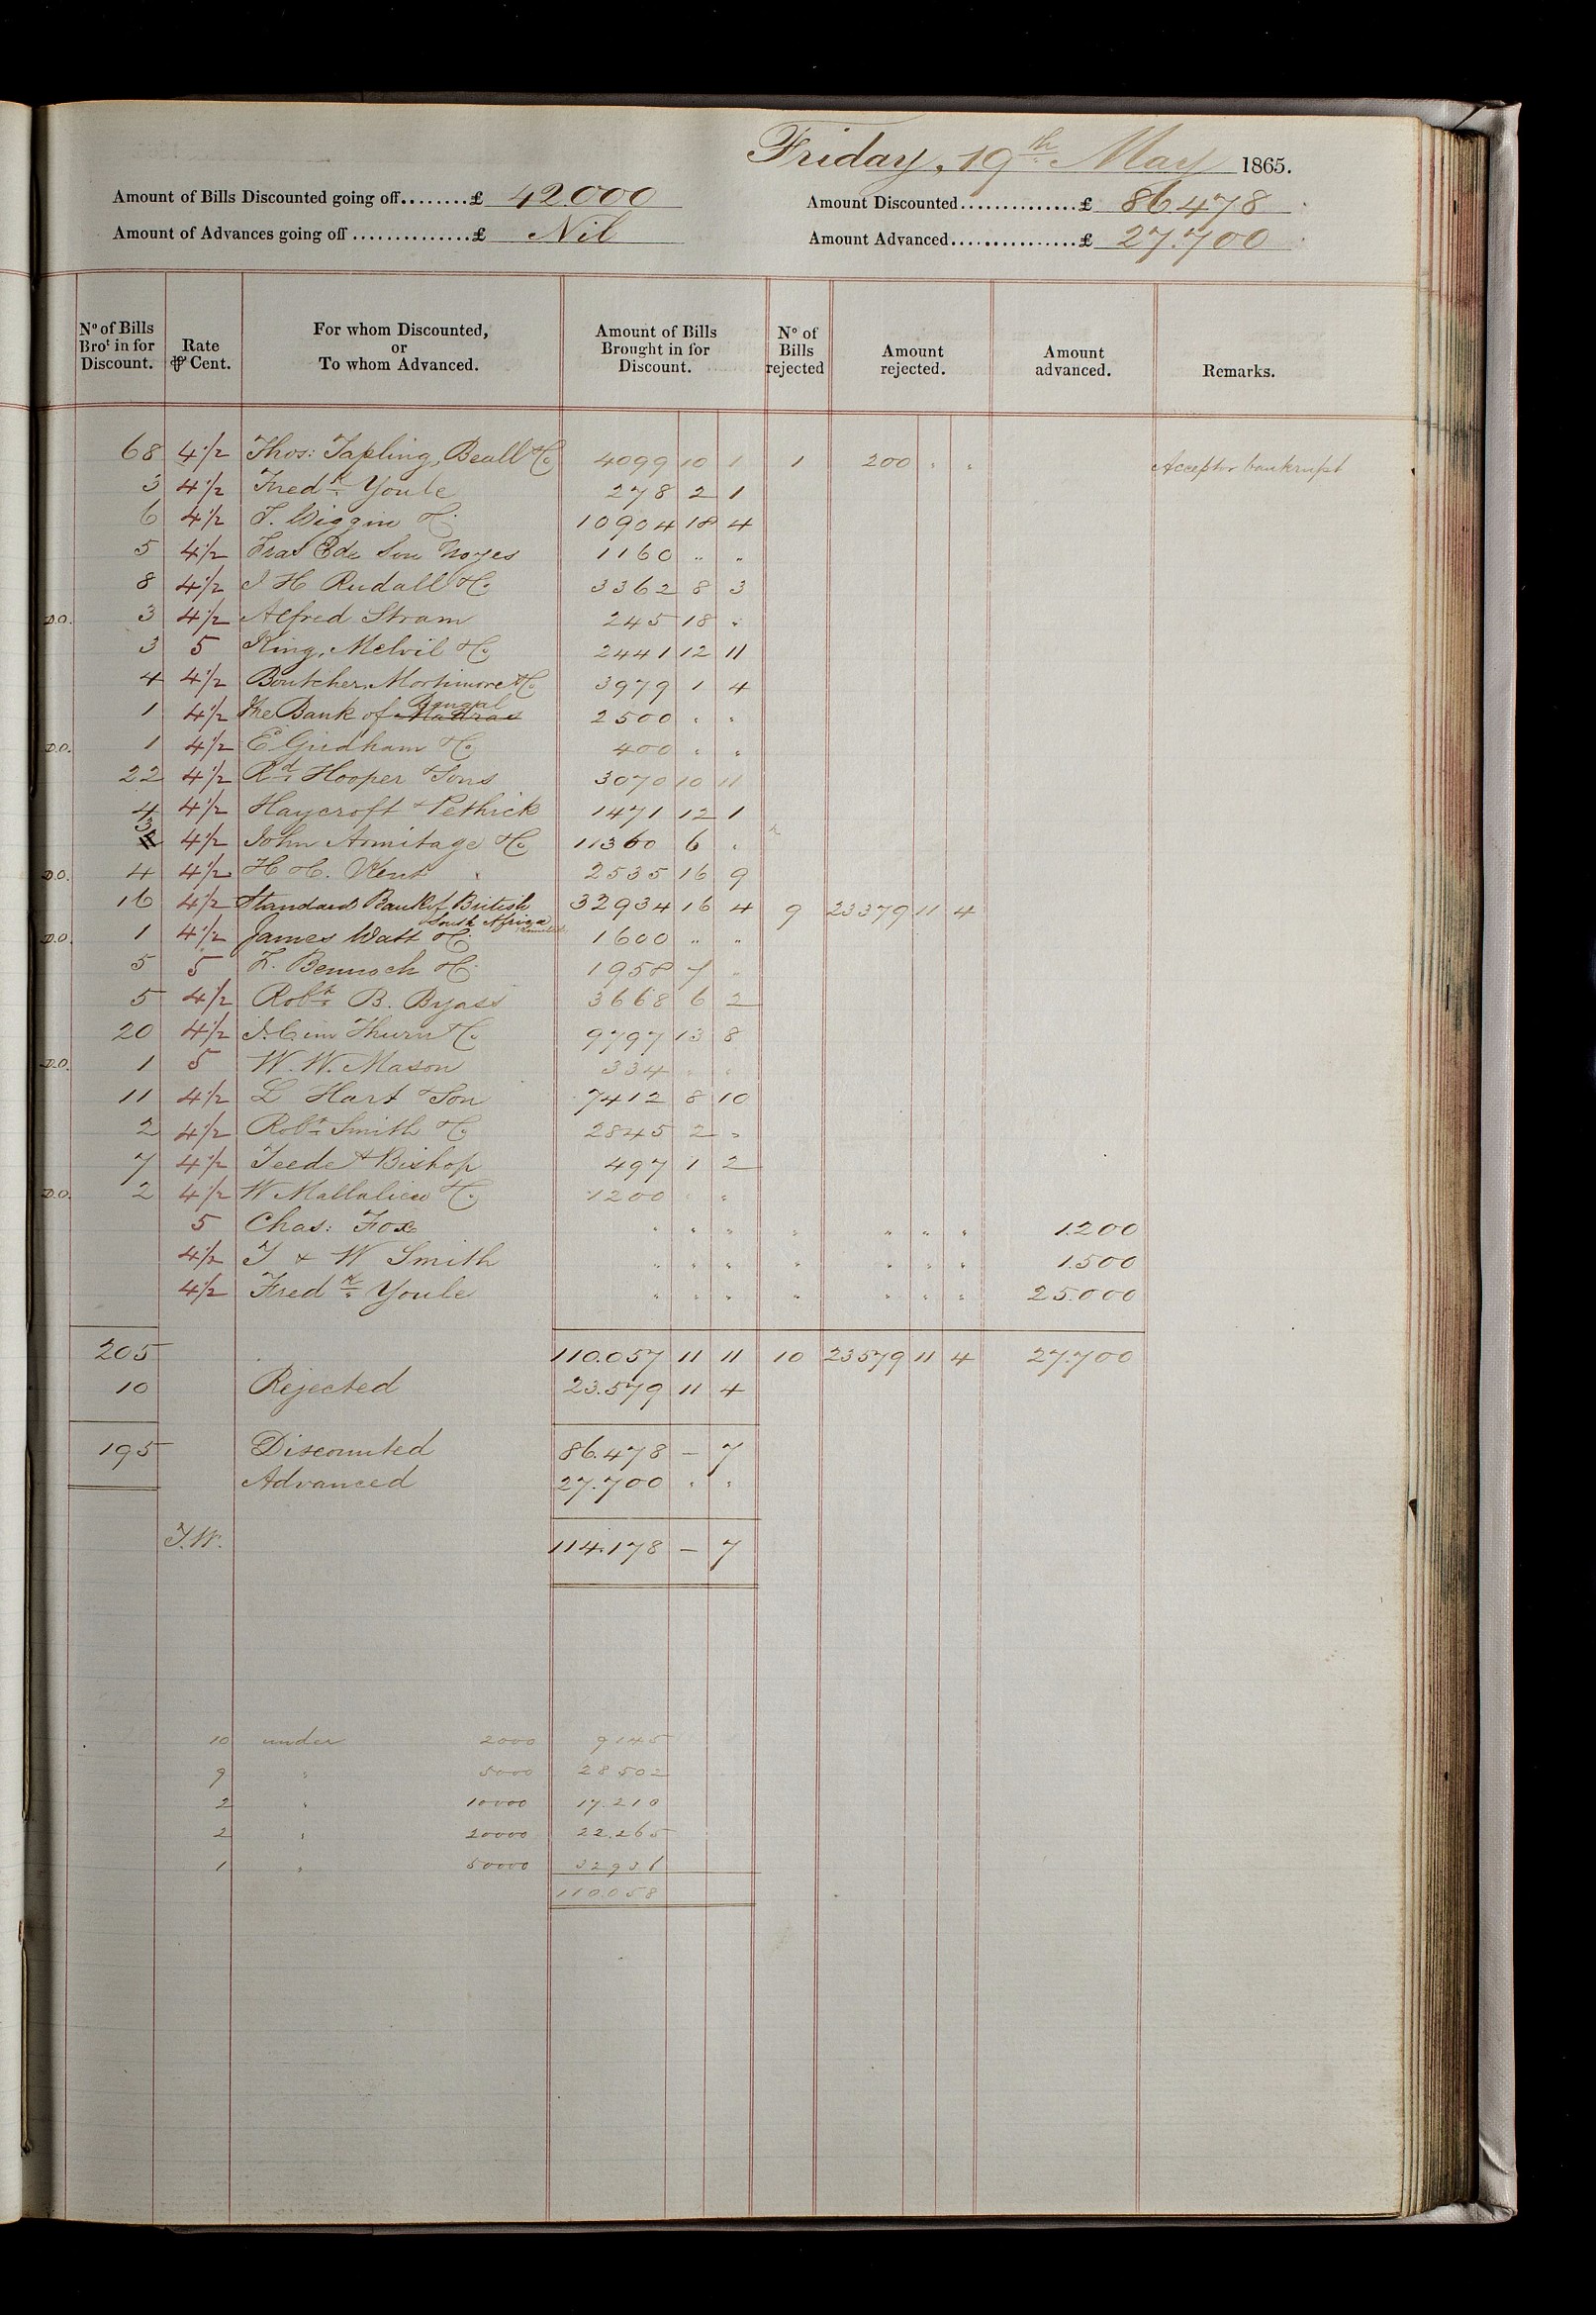 Friday, 19th May 1865.
Amount of Bills Discounted going off........£ 42000 Amount Discounted..............£ 86.478
Amount of Advances going off...............£ Nil Amount Advanced................£ 27.700
No of Bills Brot in for Discount. Rate ⅌ Cent. For whom Discounted, or To whom Advanced. Amount of Bills Brought in for Discount. No of Bills rejected Amount rejected. Amount advanced. Remarks.
68 4½ Thos: Tapling, Beall & Co 4099 10 1 1 200 " " Acceptor bankrupt
3 4½ Fredk Youle 278 2 1
6 4½ T. Wiggin & Co 10904 18 4
5 4½ Fras Ede Son Noyes 1160 " "
8 4½ J H Rudall & Co 3362 8 3
D.O. 3 4½ Alfred Stram 245 18 "
3 5 King, Melvil & Co 2441 12 11
4 4½ Boutcher Mortimore & Co 3979 1 4
1 4½ The Bank of Madras Bengal 2500 " "
D.O. 1 4½ E Gridham & Co 400 " "
22 4½ Rd Hooper & Sons 3070 10 11
4 4½ Haycroft & Pethick 1471 12 1
3 4½ John Armitage & Co 11360 6 "
D.O. 4 4½ H & C. Kent 2535 16 9
16 4½ Standard Bank of British South Africa Limited 32934 16 4 9 23379 11 4
D.O. 1 4½ James Watt & Co 1600 " "
5 5 F. Bennoch & Co 1958 7 "
5 4½ Robt B. Byass 3668 6 2
20 4½ J. C im Thurn & Co 9797 13 8
D.O. 1 5 W. W. Mason 334 " "
11 4½ L Hart & Son 7412 8 10
2 4½ Robt Smith & Co 2845 2 "
7 4½ Teede & Bishop 497 1 2
D.O. 2 4½ W Mallalieu & Co 1200 " "
5 Chas: Fox " " " " " " " 1.200
4½ T & W Smith " " " " " " " 1.500
4½ Fredk Youle " " " " " " " 25.000
205 110.057 11 11 10 23579 11 4 27.700
10 Rejected 23.579 11 4
195 Discounted 86.478 – 7
Advanced 27.700 " "
T.W. 114.178 – 7
10 under 2000 9145
9 " 5000 28502
2 " 10000 17.210
2 " 20000 22.265
1 " 50000 32936
110.058